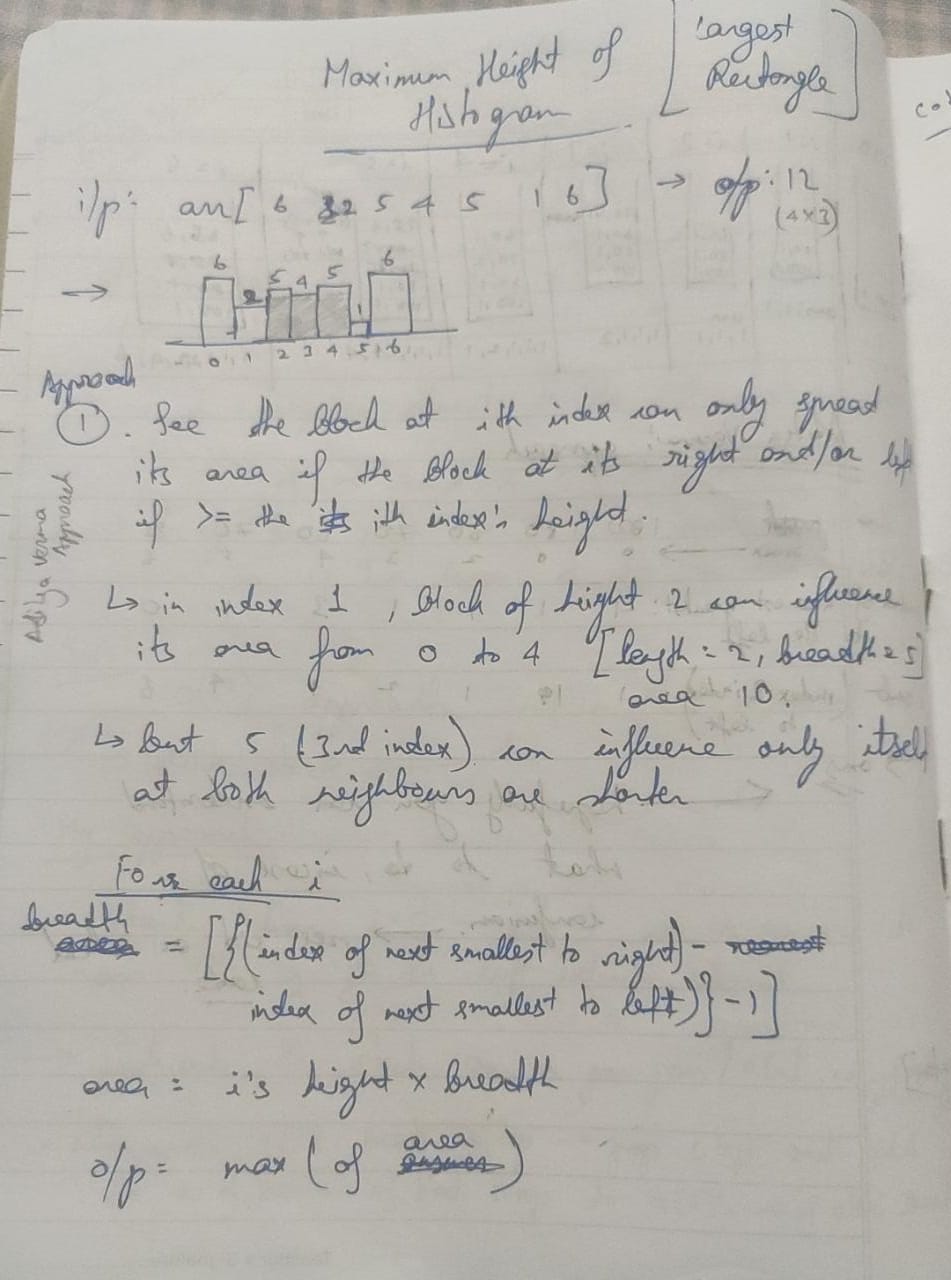 Maximum Height of
Histogram
[Largest
Rectangle]
i/p: arr[ 6 2 5 4 5 1 6 ] → o/p: 12
(4x3)
→
6 2 5 4 5 1 6
0 1 2 3 4 5 6
Approach
① . See the block at ith index can only spread
its area if the block at its right and/or left
if >= the ith index's height.
Aditya Verma
Approach
↳ in index 1 , block of height 2 can influence
its area from 0 to 4 [length = 2, breadth = 5]
area 10.
↳ but 5 (3rd index) can influence only itself
at both neighbours are shorter
For each i
breadth = [{(index of next smallest to right) -
index of next smallest to left)} - 1]
area = i's height x breadth
o/p = max (of area)